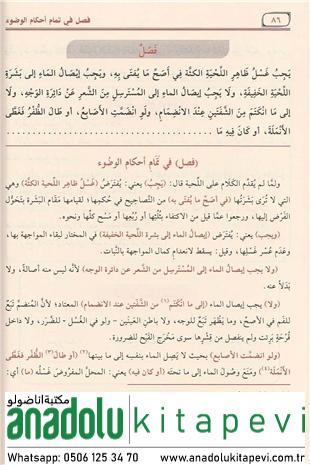 ٨٦
فصل في تمام أحكام الوضوء
فَصْلٌ
يَجِبُ غَسْلُ ظَاهِرِ اللِّحْيَةِ الكَثَّةِ فِي أَصَحِّ مَا يُفْتَى بِهِ، وَيَجِبُ إِيْصَالُ المَاءِ إِلَى بَشَرَةِ
اللِّحْيَةِ الخَفِيفَةِ، وَلَا يَجِبُ إِيصَالُ المَاءِ إِلَى المُسْتَرْسِلِ مِنَ الشَّعْرِ عَنْ دَائِرَةِ الوَجْهِ، وَلَا
إِلَى مَا انْكَتَمَ مِنَ الشَّفَتَيْنِ عِنْدَ الانْضِمَامِ، وَلَوِ انْضَمَّتِ الأَصَابِعُ، أَو طَالَ الظُّفْرُ فَغَطَّى
الأَنْمُلَةَ، أو كَانَ فِيهِ مَا
(فصل) في تمام أحكام الوضوء
ولمّا لم يُقدّم الكلام على اللحية قال: (يَجِبُ) يعني: يُفترَضُ (غَسلُ ظاهر اللحية الكثّة) وهي
التي لا تُرَى بَشَرتُها (في أصحّ ما يُفتى به) من التصاحيح في حُكمها؛ لقيامها مقامَ البشرة بتحوُّل
الفرض إليها، ورجعوا عمّا قيل من الاكتفاء بثُلُثها أو رُبعها أو مسحِ كلّها ونحوه.
(ويجب) يعني: يُفترَضُ (إيصالُ الماء إلى بشرة اللحية الخفيفة) في المختار لبقاء المواجهة بها،
وعدمِ عُسرِ غَسلِها، وقيل: يسقط لانعدام كمال المواجهة بالنبات.
(ولا يجب إيصالُ الماء إلى المسترسل من الشعر عن دائرة الوجه) لأنّه ليس منه أصالةً، ولا
بدلاً عنه.
(ولا) يجب إيصالُ الماء (إلى ما انكتم من الشفتين عند الانضمام) المعتاد؛ لأنّ المنضمّ تبعٌ
للفم في الأصحّ، وما يظهر تبعٌ للوجه، ولا باطنِ العينين - ولو في الغسل - للضرر، ولا داخلِ
قُرحةٍ بَرِئت ولم ينفصل من قِشرها سوى مَخرجِ القيح للضرورة.
(ولو انضمّت الأصابع) بحيث لا يصل الماء بنفسه إلى ما بينها (أو طال الظُّفر فغطّى
الأنملة) ومنع وصولَ الماء إلى ما تحته (أو كان فيه) يعني: المحلّ المفروض غَسلُه (ما) أي:
مكتبة اناضولو
anadolu kitapevi
Whatsapp: 0506 125 34 70
www.anadolukitapevi.com.tr